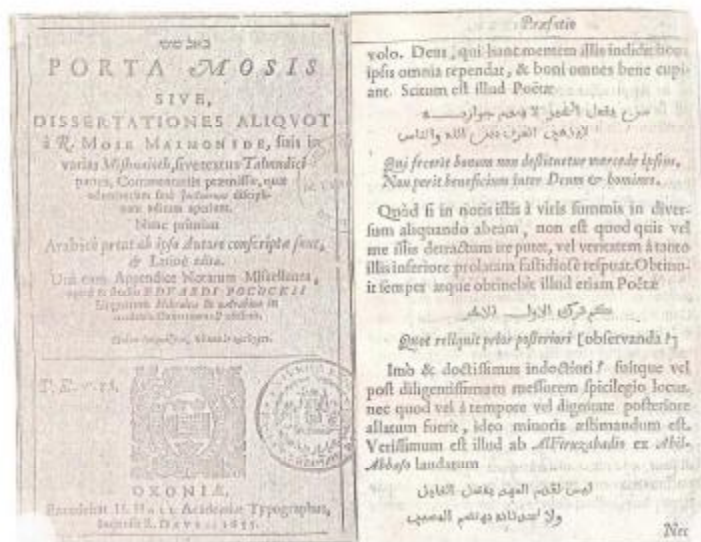 PORTA MOSIS
SIVE,
DISSERTATIONES ALIQVOT
à R. MOSE MAIMONIDE, suis in
varias Mishnaioth, sive textus Talmudici
partes, Commentariis præmissæ, quæ
Nunc primùm
Arabicè prout ab ipso Autore conscriptæ sunt,
& Latinè editæ.
Unà cum Appendice Notarum Miscellanea,
EDVARDI POCOCKII
OXONIÆ,
Excudebat H. HALL Academiæ Typographus,
1655.
Præfatio
volo. Deus, qui hanc mentem illis indidit bona
ipsis omnia rependat, & boni omnes bene cupi-
ant. Scitum est illud Poëtæ
من يفعل الخير لا يعدم جوازيه
لا يذهب العرف بين الله والناس
Qui fecerit bonum non destituetur mercede ipsius,
Non perit beneficium inter Deum & homines.
Quòd si in notis istis à viris summis in diver-
sum aliquando abeam, non est quod quis vel
me illis detractum ire putet, vel veritatem à tanto
illis inferiore prolatam fastidiosè respuat. Obtinu-
it semper æque obtinebit illud etiam Poëtæ
كم ترك الاول للاخر
Quot reliquit prior posteriori [observanda!]
Imò & doctissimus indoctiori! fuitque vel
post diligentissimum messorem spicilegio locus,
nec quod vel à tempore vel dignitate posteriore
allatum fuerit, ideo minoris æstimandum est.
Verissimum est illud ab AlFiruzabadio ex Abil-
Abbaso laudatum
ليس لقدم العهد يفضل القايل
ولا لحدثانه يهتضم المصيب
Nec